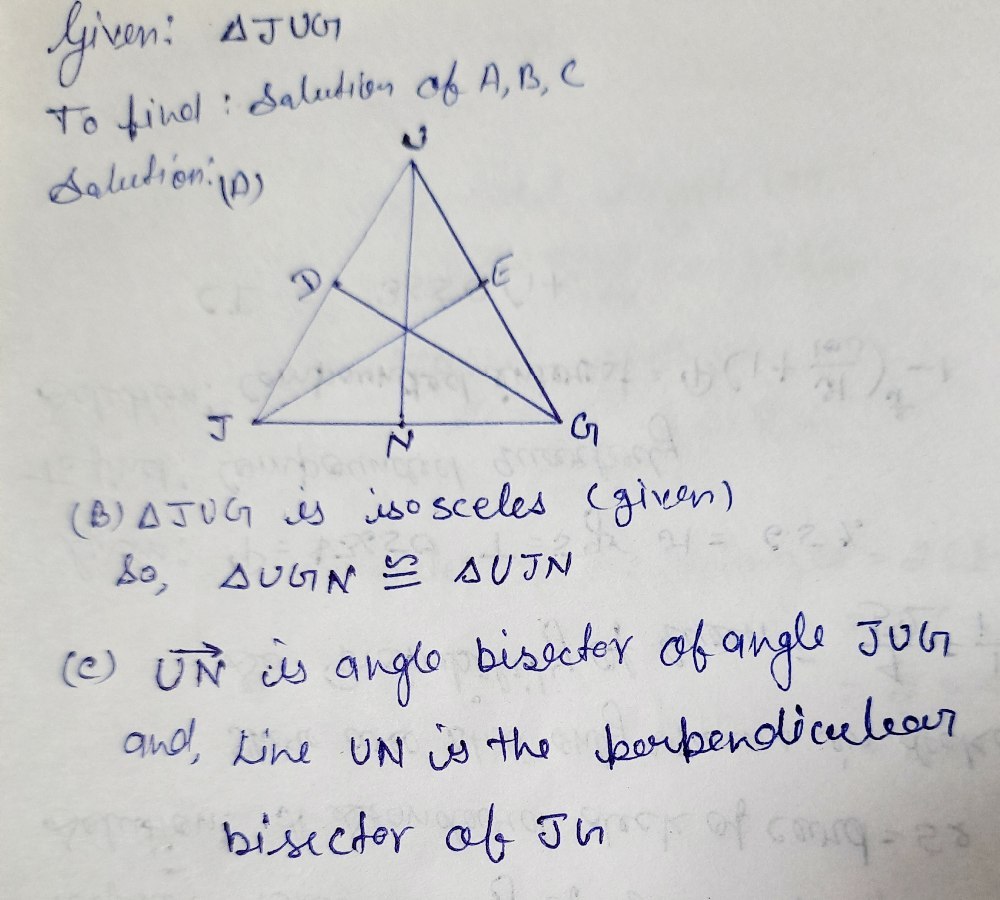 Given: ΔJUG
To find: Solution of A, B, C
Solution: (A)
U
D
E
J
N
G
(B) ΔJUG is isosceles (given)
So, ΔUGN ≅ ΔUJN
(C) $\overrightarrow{UN}$ is angle bisector of angle JUG
and, Line UN is the perpendicular
bisector of JG